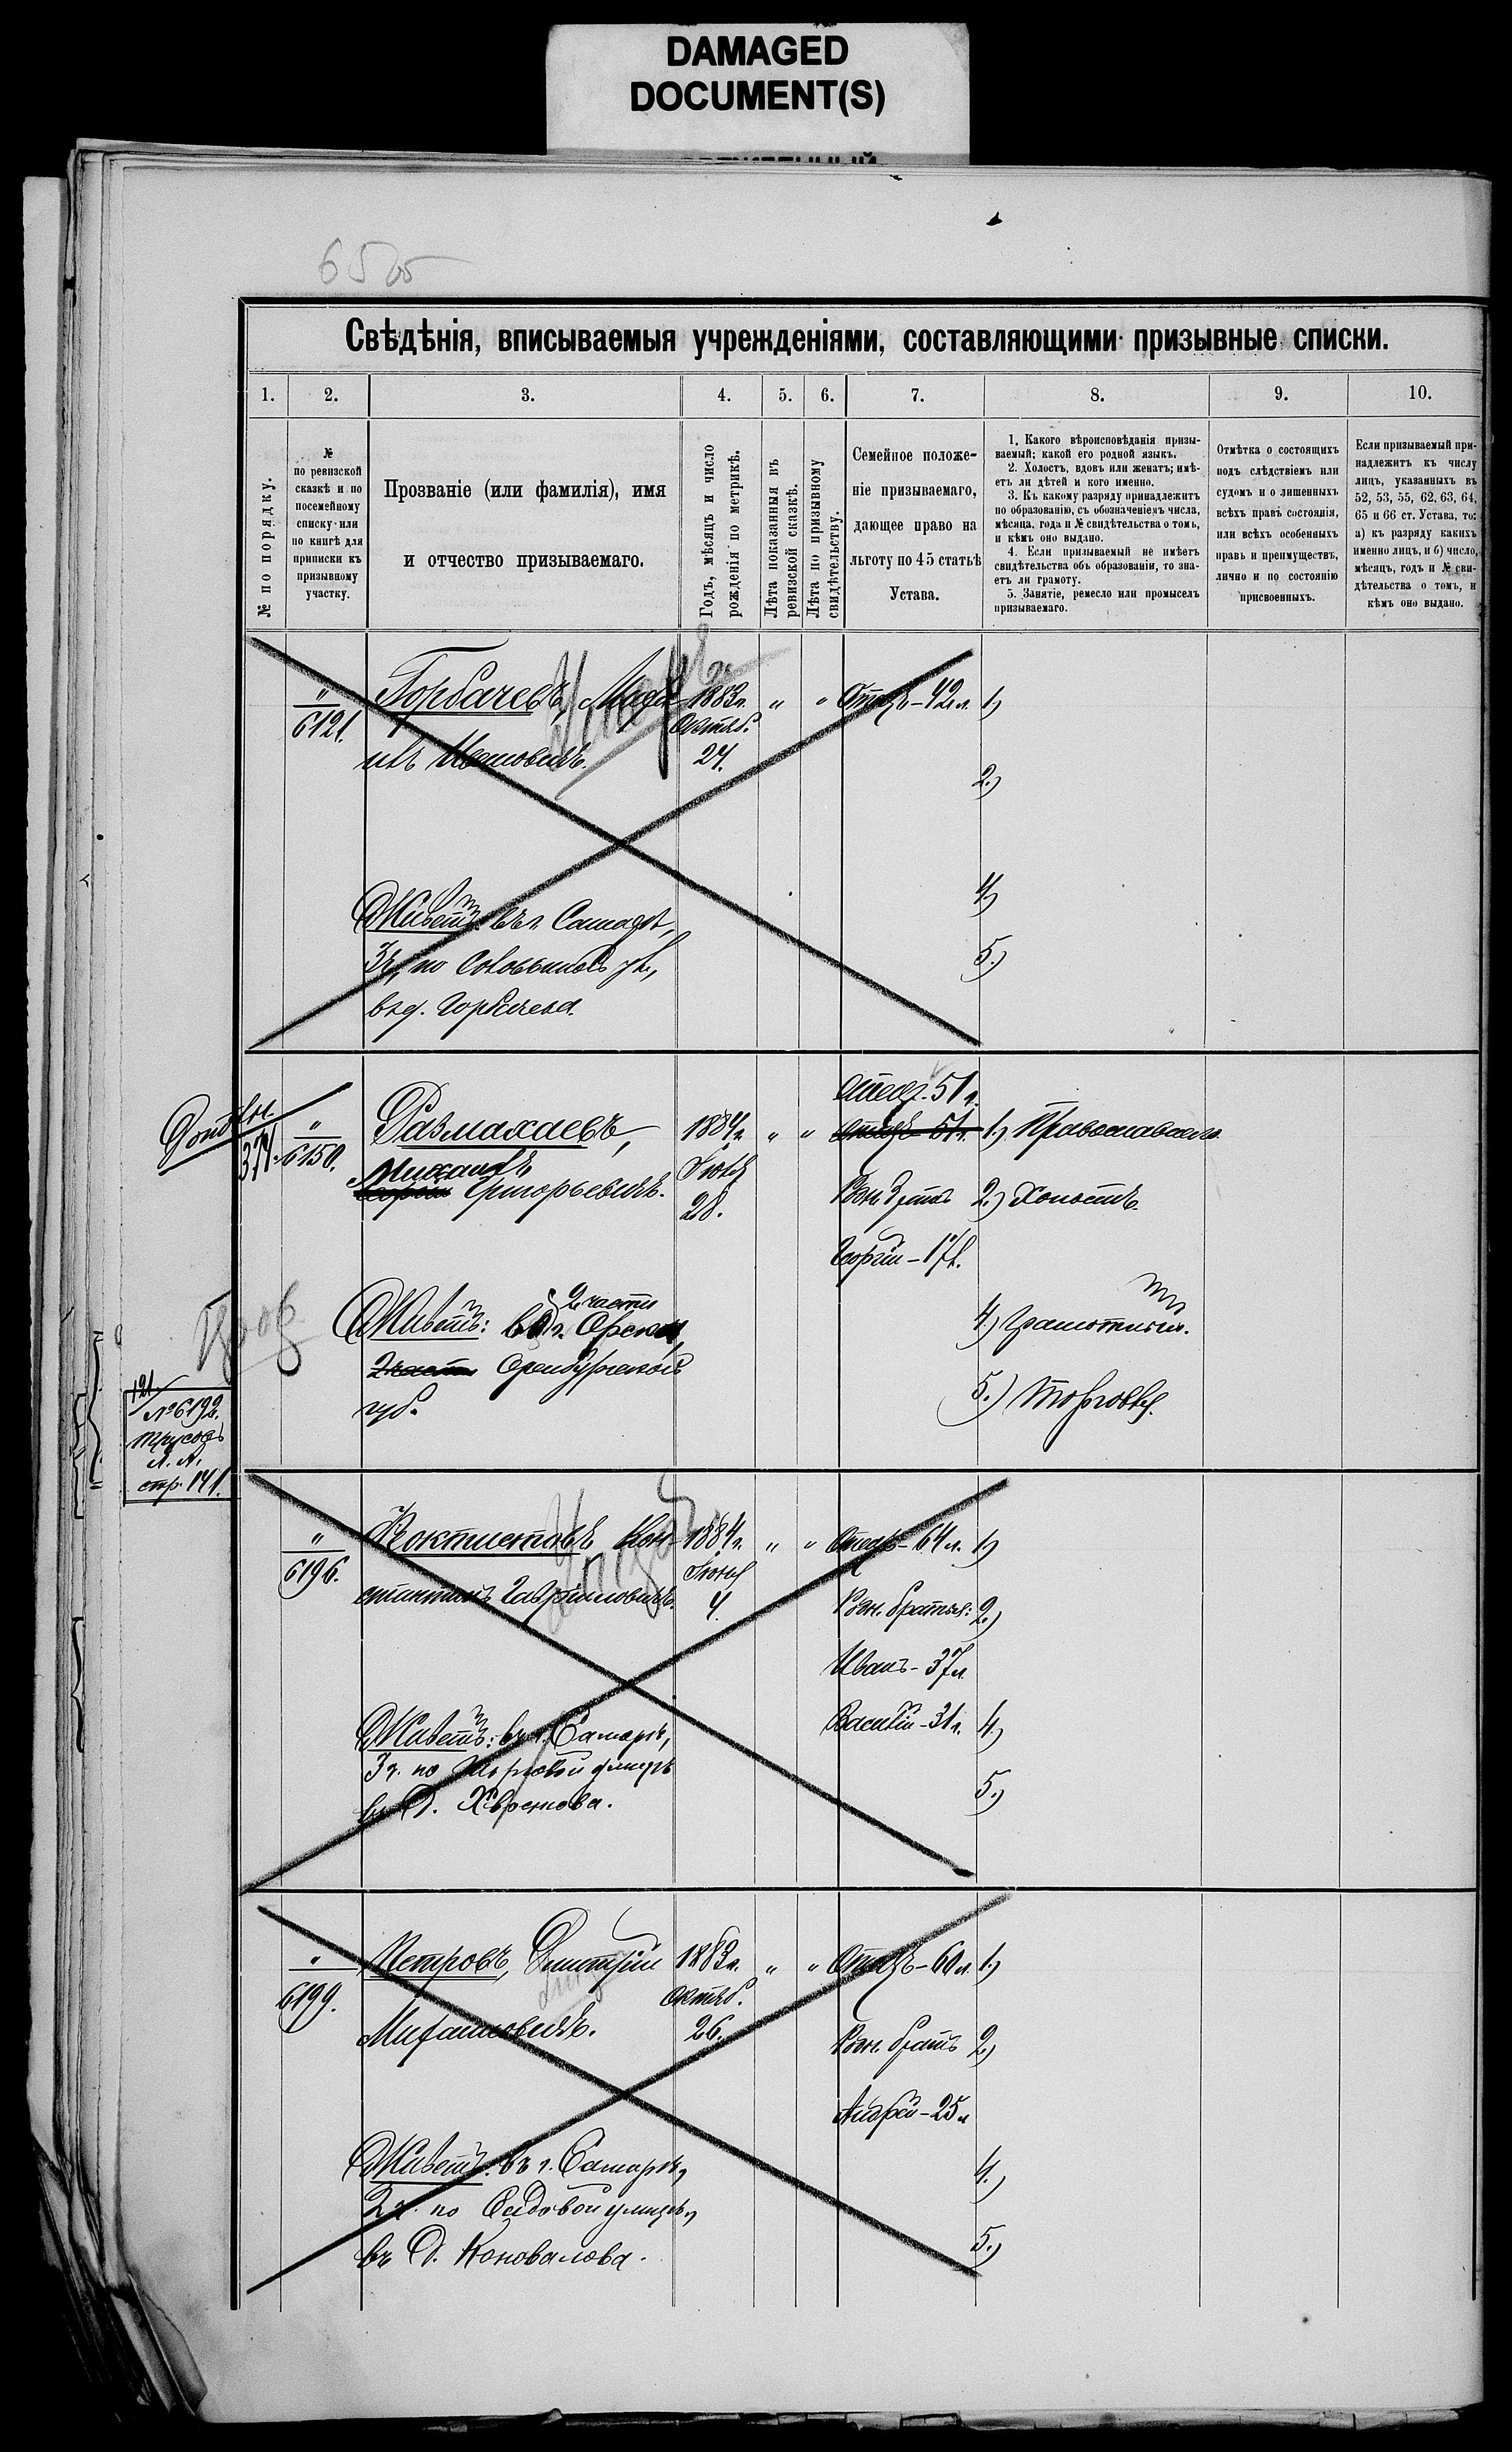 DAMAGED
DOCUMENT(S)
65 об
Свѣдѣнія, вписываемыя учрежденіями, составляющими призывные списки.
1. 2. 3. 4. 5. 6. 7. 8. 9. 10.
№ по порядку.
№
по ревизской
сказкѣ и по
посемейному
списку или
по книгѣ для
приписки къ
призывному
участку.
Прозваніе (или фамилія), имя
и отчество призываемаго.
Годъ, мѣсяцъ и число
рожденія по метрикѣ.
Лѣта показанныя въ
ревизской сказкѣ.
Лѣта по призывному
свидѣтельству.
Семейное положе-
ніе призываемаго,
дающее право на
льготу по 45 статьѣ
Устава.
1. Какого вѣроисповѣданія призы-
ваемый; какой его родной языкъ.
2. Холостъ, вдовъ или женатъ; имѣ-
етъ ли дѣтей и кого именно.
3. Къ какому разряду принадлежитъ
по образованію, съ обозначеніемъ числа,
мѣсяца, года и № свидѣтельства о томъ,
и кѣмъ оно выдано.
4. Если призываемый не имѣетъ
свидѣтельства объ образованіи, то зна-
етъ ли грамоту.
5. Занятіе, ремесло или промыселъ
призываемаго.
Отмѣтка о состоящихъ
подъ слѣдствіемъ или
судомъ и о лишенныхъ
всѣхъ правъ состоянія,
или всѣхъ особенныхъ
правъ и преимуществъ,
лично и по состоянію
присвоенныхъ.
Если призываемый при-
надлежитъ къ числу
лицъ, указанныхъ въ
52, 53, 55, 62, 63, 64,
65 и 66 ст. Устава, то:
а) къ разряду какихъ
именно лицъ, и б) число,
мѣсяцъ, годъ и № сви-
дѣтельства о томъ, и
кѣмъ оно выдано.
" Горбачевъ, 1883г. " " Отецъ-42л. 1)
6121. Октяб.
27.
2.)
4)
Живетъ: въ г. Самарѣ,
3ч., по Соловьиной ул., 5.)
въ д. Горбачева.
Отецъ. 51 г.
" Размахаевъ, 1884г. " " Отецъ 51г. 1.) Православнаго
374. 6150. Михаилъ Іюля
Григорьевичъ. 28. Родн. братъ 2.) Холостъ.
Георгій-17л.
2 части
Живетъ: въ г. Орскѣ, 4.) Грамотный.
2 части Оренбургской
губ. 5.) Торговля.
121
№ 6192.
Трусовъ
А. А.
стр. 141.
" Феоктистовъ Кон- 1884г. " " Отецъ-64л. 1)
6196. Іюня
стантинъ Гавриловичъ. 4. Родн. братья: 2.)
Иванъ-37л
Василій-31г. 4.)
Живетъ: въ г. Самарѣ,
3ч. по Торговой улицѣ
въ д. 5.)
" Петровъ, Дмитрій 1883г. " " Отецъ-60л. 1.)
6199. Октяб.
Михаиловичъ. 26. Родн. братъ 2)
Андрей-25л
Живетъ: въ г. Самарѣ, 4.)
2ч. по Садовой улицѣ,
въ д. Коновалова. 5.)